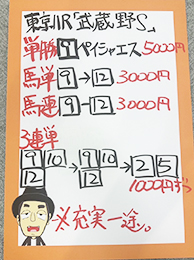 東京11R「武蔵野S」
単勝 9 ペイシャエス 5000円
馬単 9 → 12 3000円
馬連 9 - 12 3000円
3連単
9 10 12 → 9 10 12 → 2 5
1000円ずつ
※充実一途。